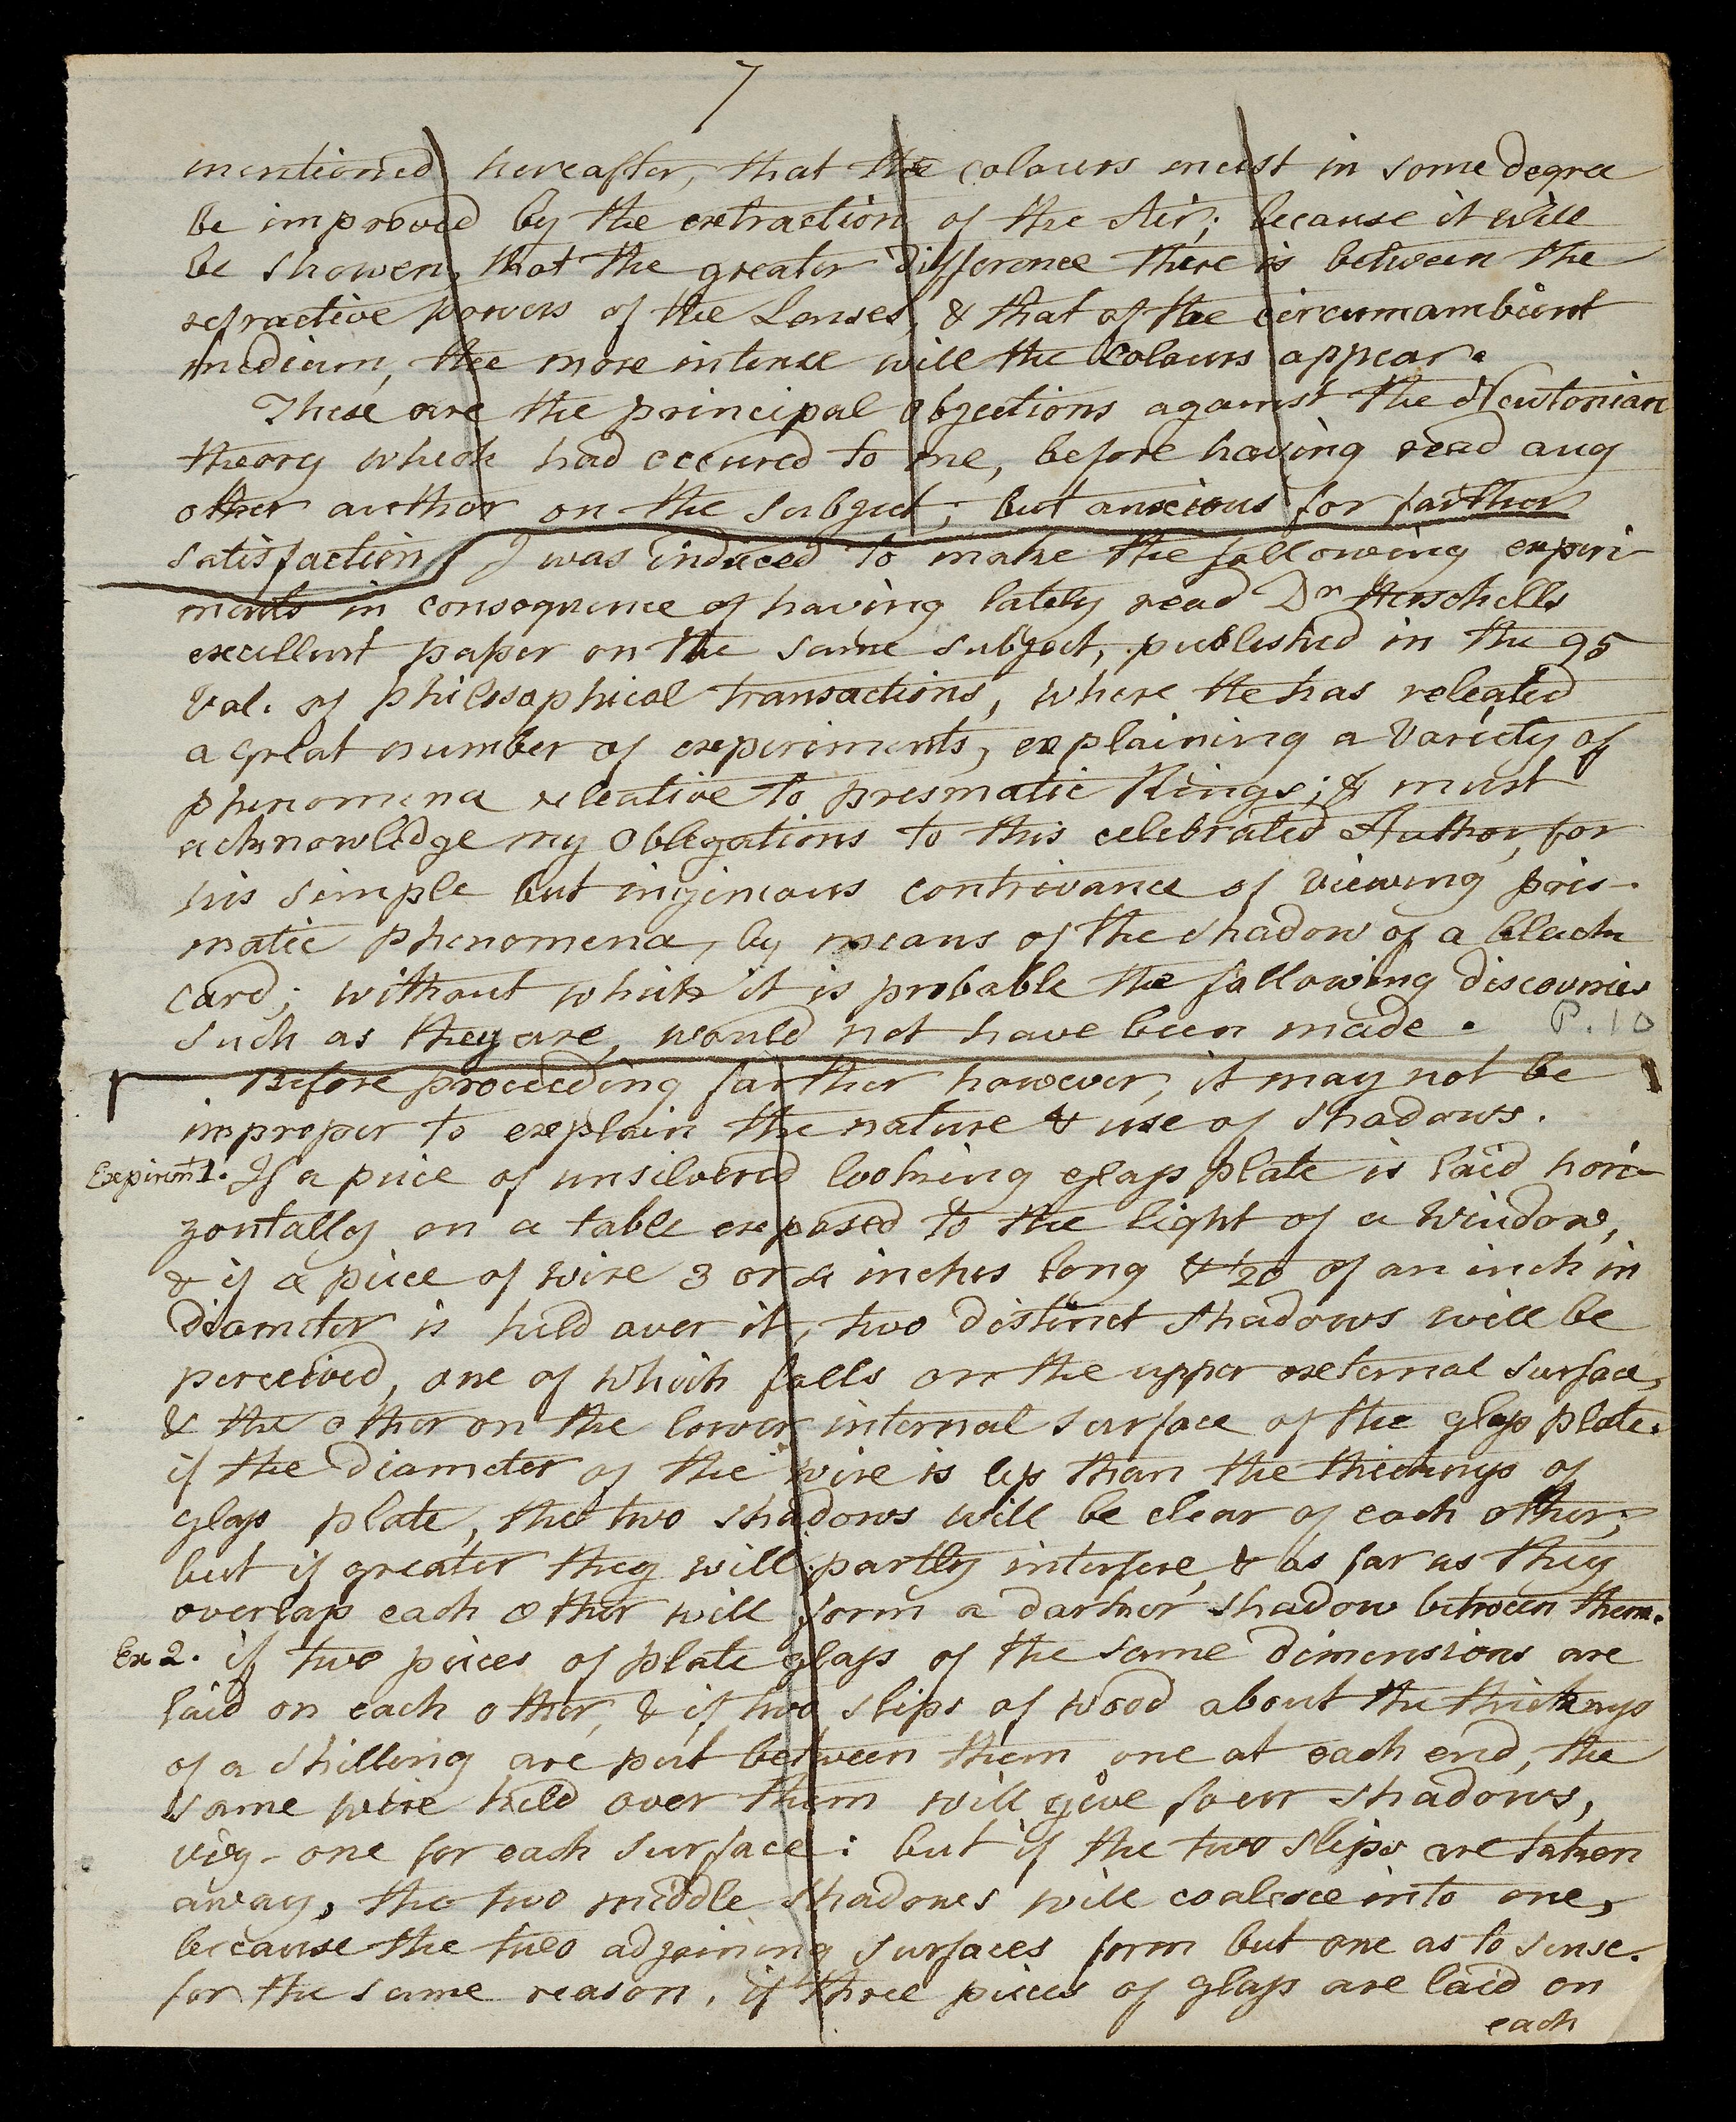 7
mentioned hereafter, that the colours must in some degree
be improved by the extraction of the Air; because it will
be showen, that the greater difference there is between the
refractive powers of the Lenses, & that of the circumambient
medium, the more intense will the Colours appear.
These are the principal objections against the Newtonian
theory which had occured to me, before having read any
other author on the subject; but anxious for farther
satisfaction, I was induced to make the following experi-
ments in consequence of having lately read Dr Herschells
excellent paper on the same subject, published in the 95
Vol. of philosophical transactions, where He has releated
a great number of experiments, explaining a variety of
phenomena releative to prismatic Rings; & must
acknowledge my Obligations to this celebrated Author, for
his simple but inginious contrivance of viewing pris-
matic phenomena, by means of the shadow of a black
card; without which it is probable the following discoveries
such as they are, would not have been made. P. 10
Before proceeding farther however, it may not be
improper to explain the nature & use of shadows.
Experimt 1. If a piece of unsilvered looking glass plate is laid hori-
zontally on a table exposed to the light of a window,
& if a piece of wire 3 or 4 inches long & 1/20 of an inch in
diameter is held over it, two distinct shadows will be
perceived, one of which falls on the upper external surface,
& the other on the lower internal surface of the glass plate.
if the diameter of the wire is less than the thickness of
glass plate, the two shadows will be clear of each other;
but if greater they will partly interfere, & as far as they
overlap each other will form a darker shadow between them.
Ex 2. if two pieces of plate glass of the same dimensions are
laid on each other, & if two slips of wood about the thickness
of a shilling are put between them one at each end, the
same wire held over them will give four shadows,
viz- one for each surface: but if the two slips are taken
away, the two middle shadows will coalesce into one,
because the two adjoining surfaces form but one as to sense.
for the same reason, if three pieces of glass are laid on
each